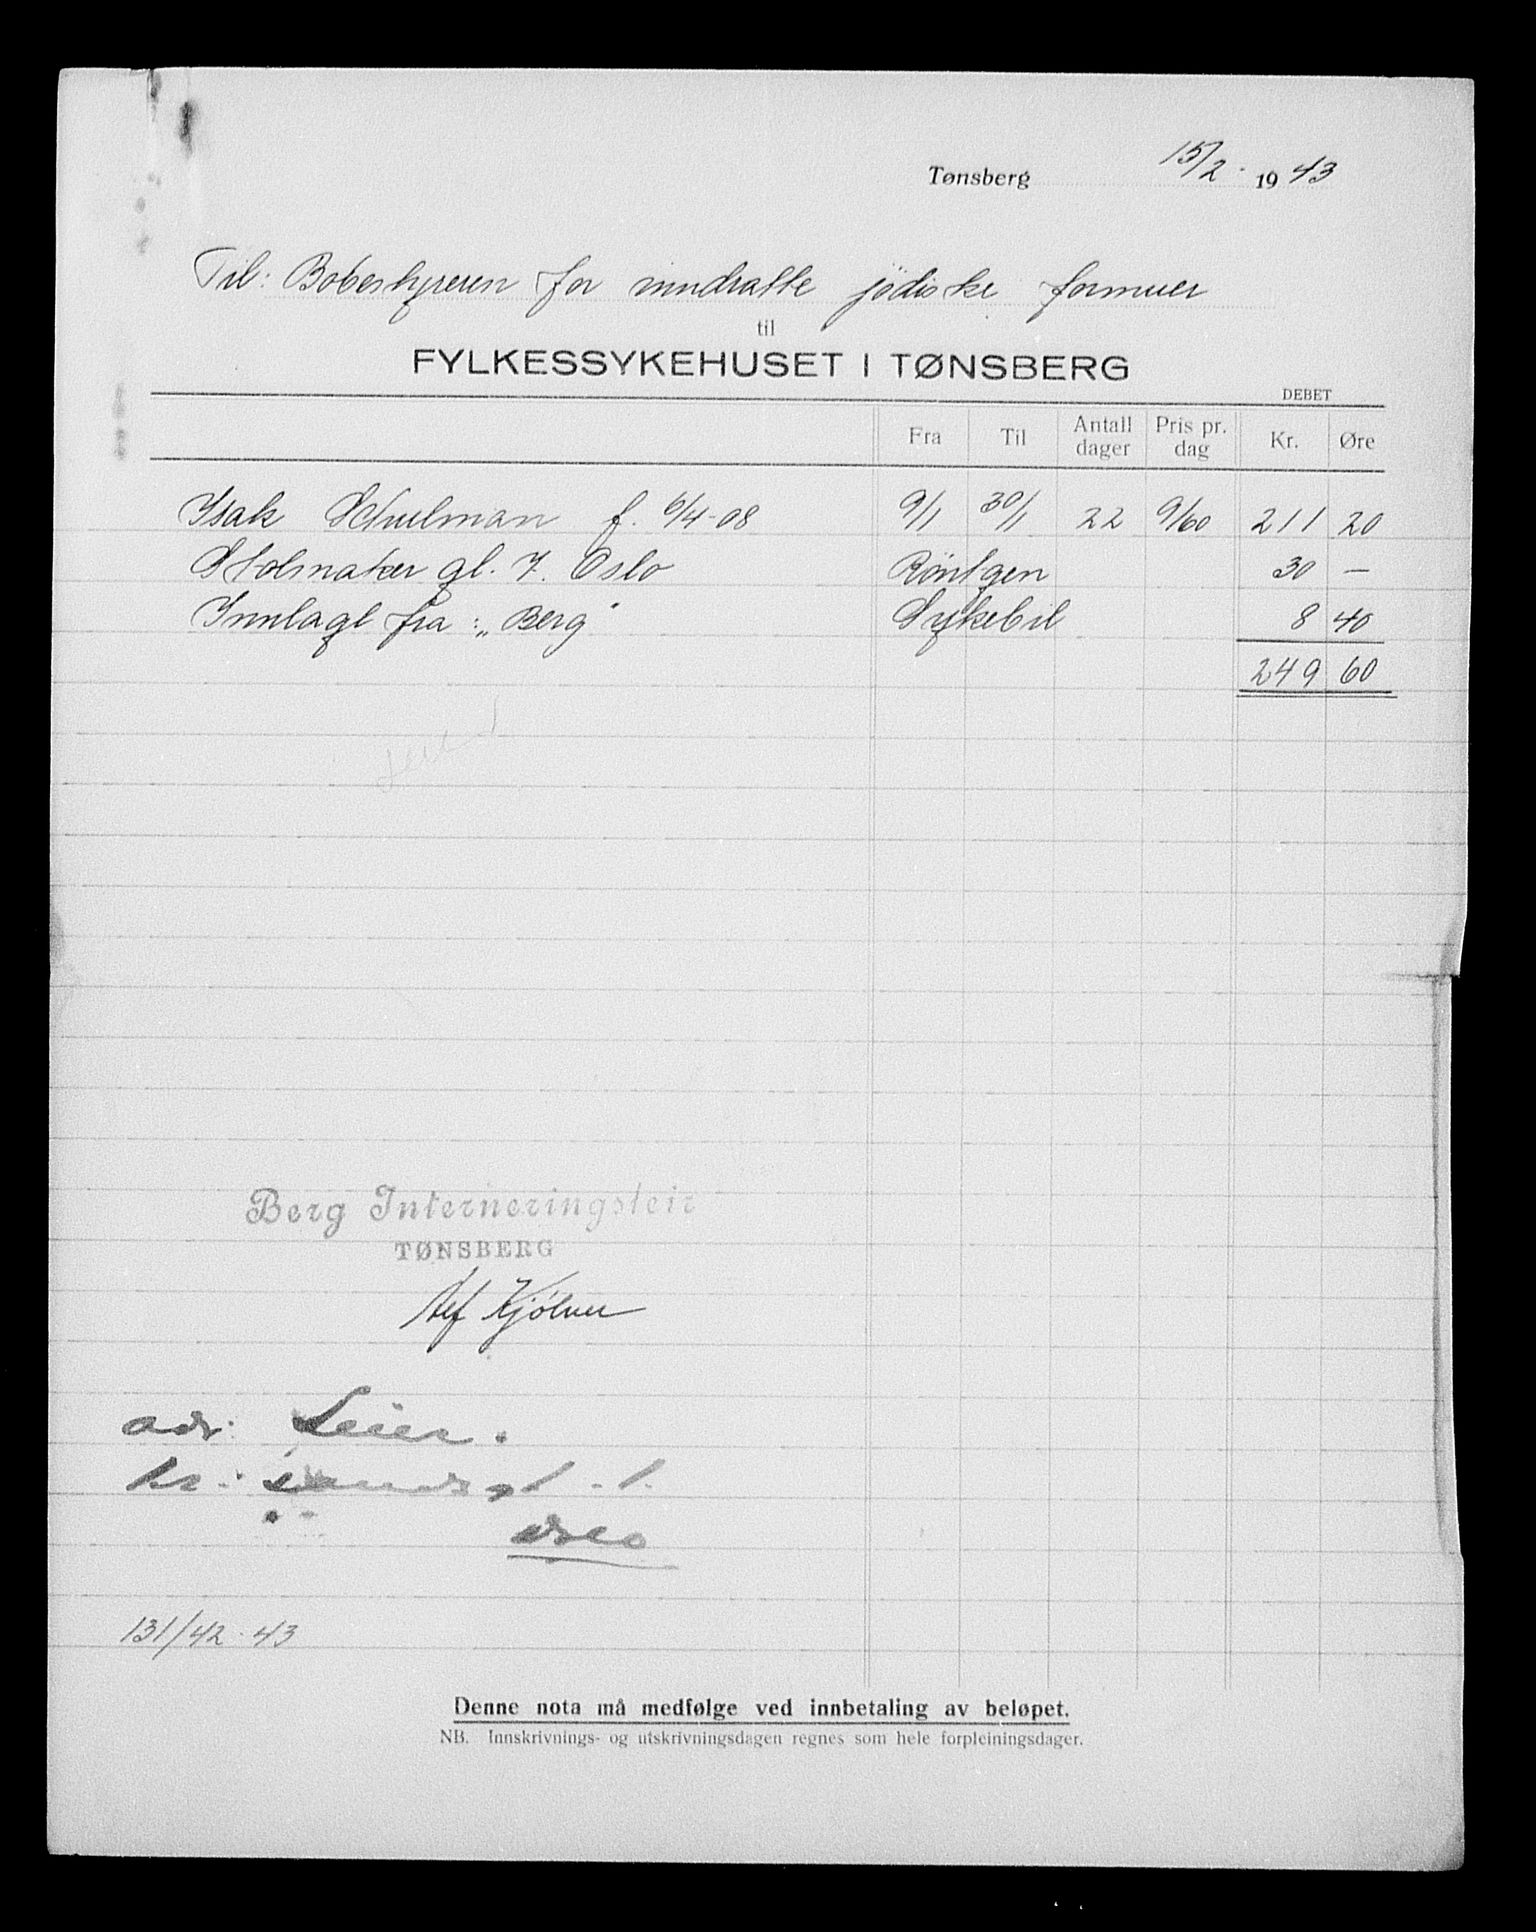 Tønsberg 15/2. 1943
Til: Bobestyreren for inndratte jødiske formuer
til
FYLKESSYKEHUSET I TØNSBERG
DEBET
Fra Til Antall dager Pris pr. dag Kr. Øre
Isak Schulman f. 6/4-08 9/1 30/1 22 9/60 211 20
gt. 7. Oslo Röntgen 30 —
Innlagt fra: „Berg" Sykebil 8 40
249 60
Berg Interneringsleir
TØNSBERG
Kjølner
adr: Leier.
Oslo
131/42-43
Denne nota må medfølge ved innbetaling av beløpet.
NB. Innskrivnings- og utskrivningsdagen regnes som hele forpleiningsdager.